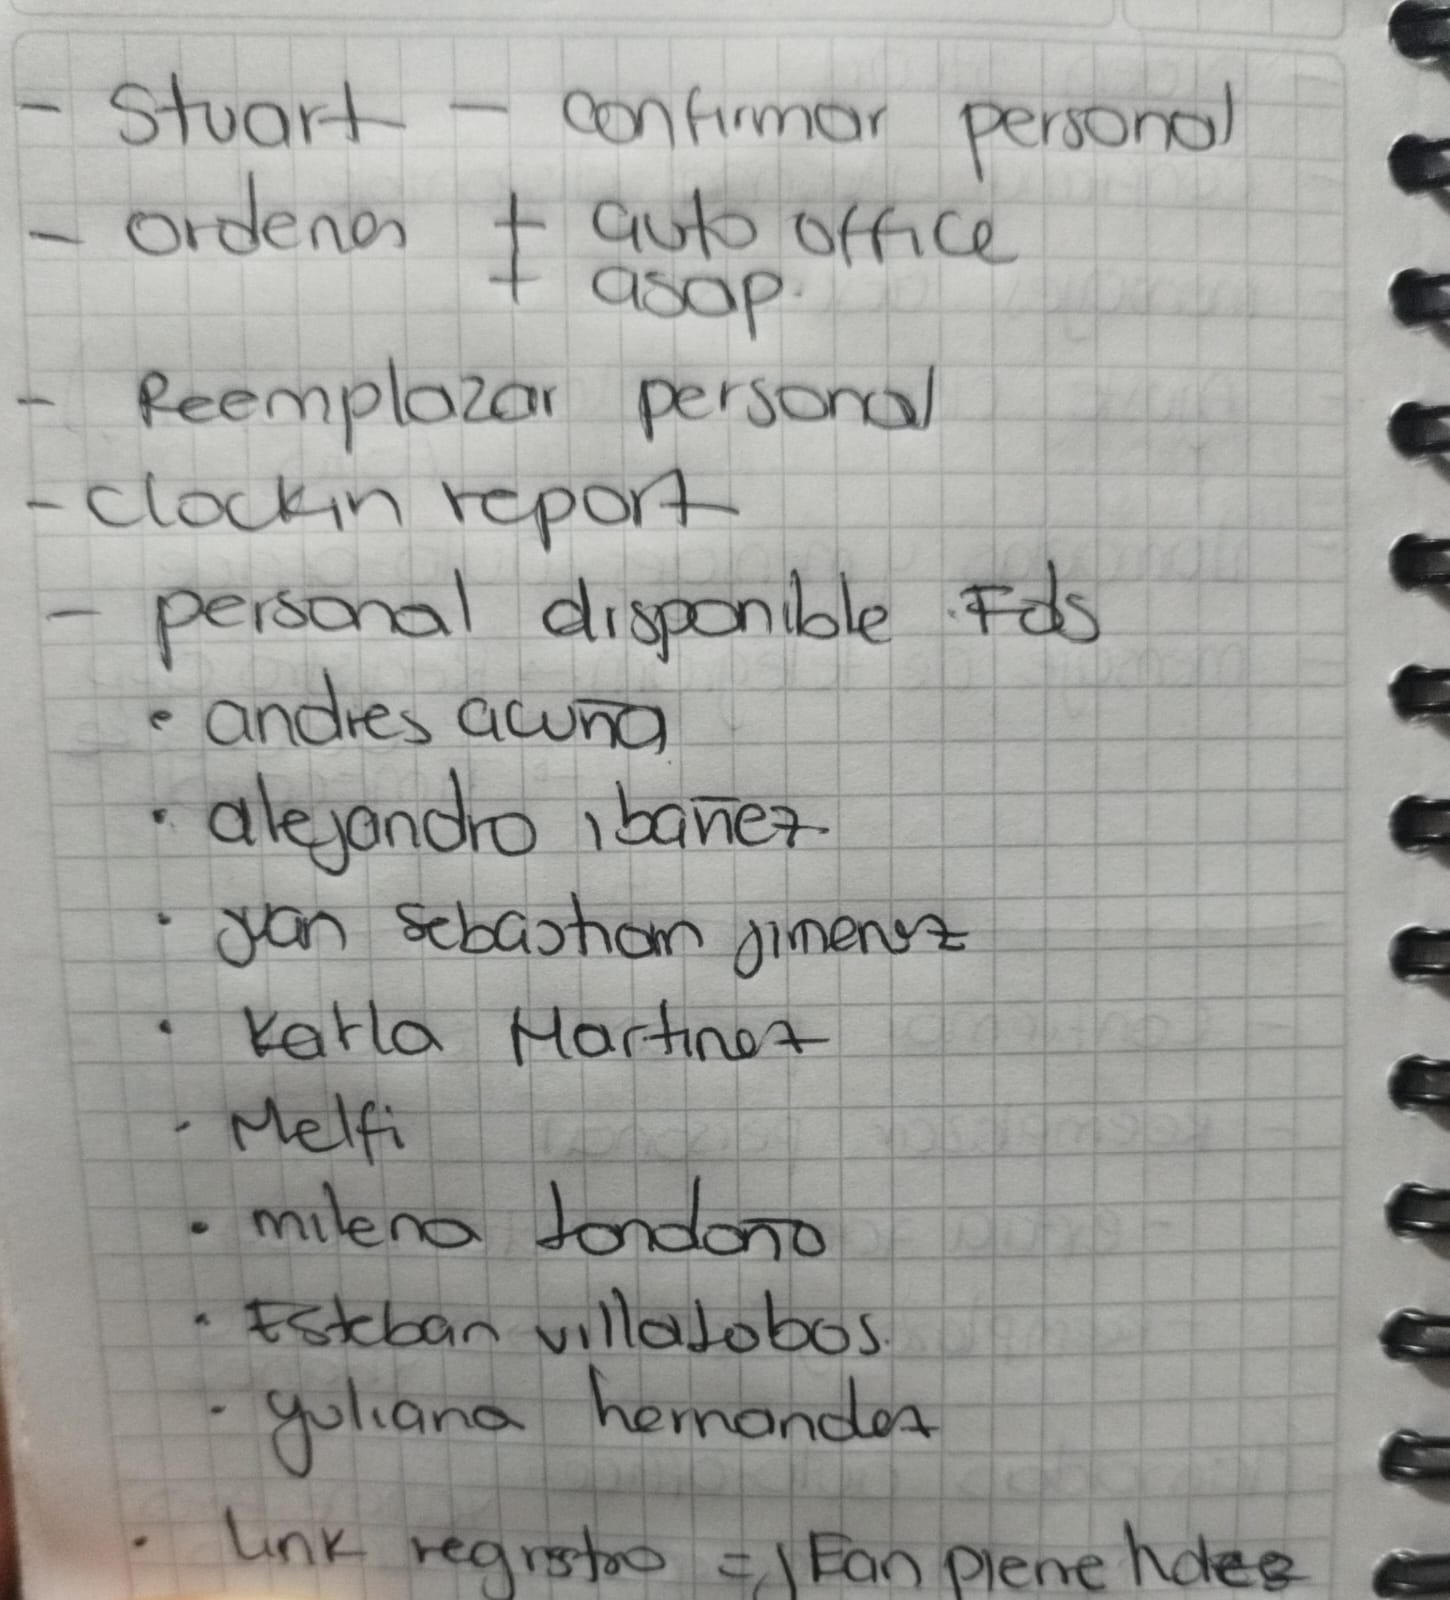 - Stuart - confirmar personal
- ordenes + auto office
+ asap.
- Reemplazar personal
- clockin report
- personal disponible Fds
• andres acuña
• alejandro ibañez
• juan sebastian jimenez
• Karla Martinez
• Melfi
• milena londoño
• Esteban villalobos.
• yuliana hernandez
• link registro = JEan pierre